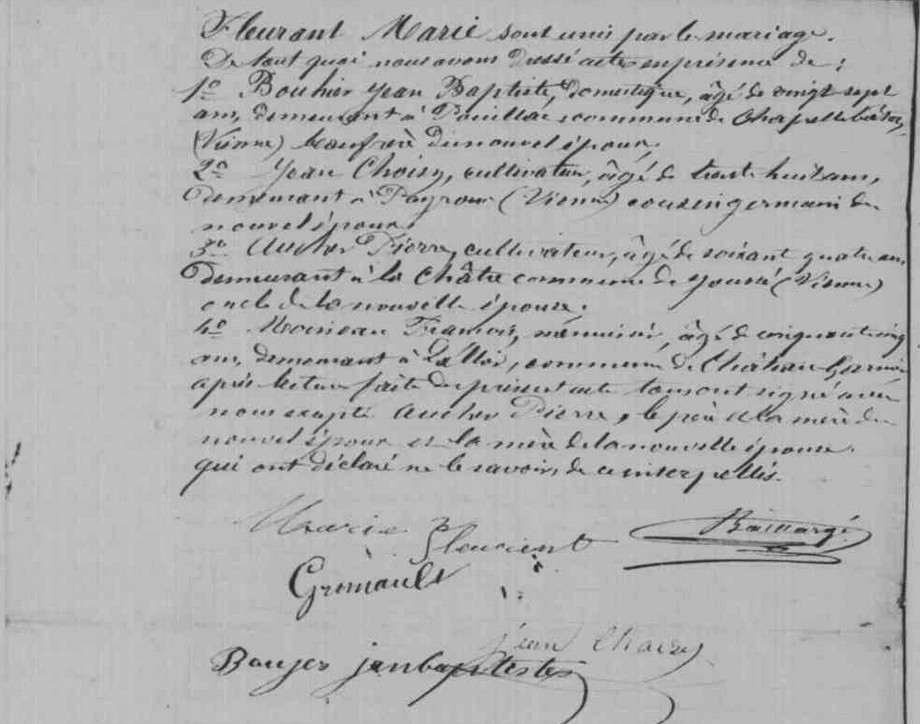 Fleurant Marie sont unis par le mariage.
De tout quoi nous avons dressé acte en présence de :
1o Bouhier Jean Baptiste, domestique, âgé de vingt sept
ans, demeurant à commune de Chapelle Bâton,
(Vienne) beaufrère du nouvel époux,
2o Jean Choisy, cultivateur, âgé de trente huit ans,
demeurant à Payroux (Vienne) cousin germain du
nouvel époux
3o Aucher Pierre, cultivateur, âgé de soixant quatre ans
demeurant à la Châtre commune de Joussé (Vienne)
oncle de la nouvelle épouse,
4o Moineau François, menuisier, âgé de cinquante cinq
ans, demeurant à commune de Château Garnier
après lecture faite du présent acte tous ont signé avec
nous excepté Aucher Pierre, le père et la mère du
nouvel époux et la mère de la nouvelle épouse
qui ont déclaré ne le savoir, de ce interpellés.
Marie Fleurient
Baillargé
Grimault
jean Choisy
Baujer jenbaptiste